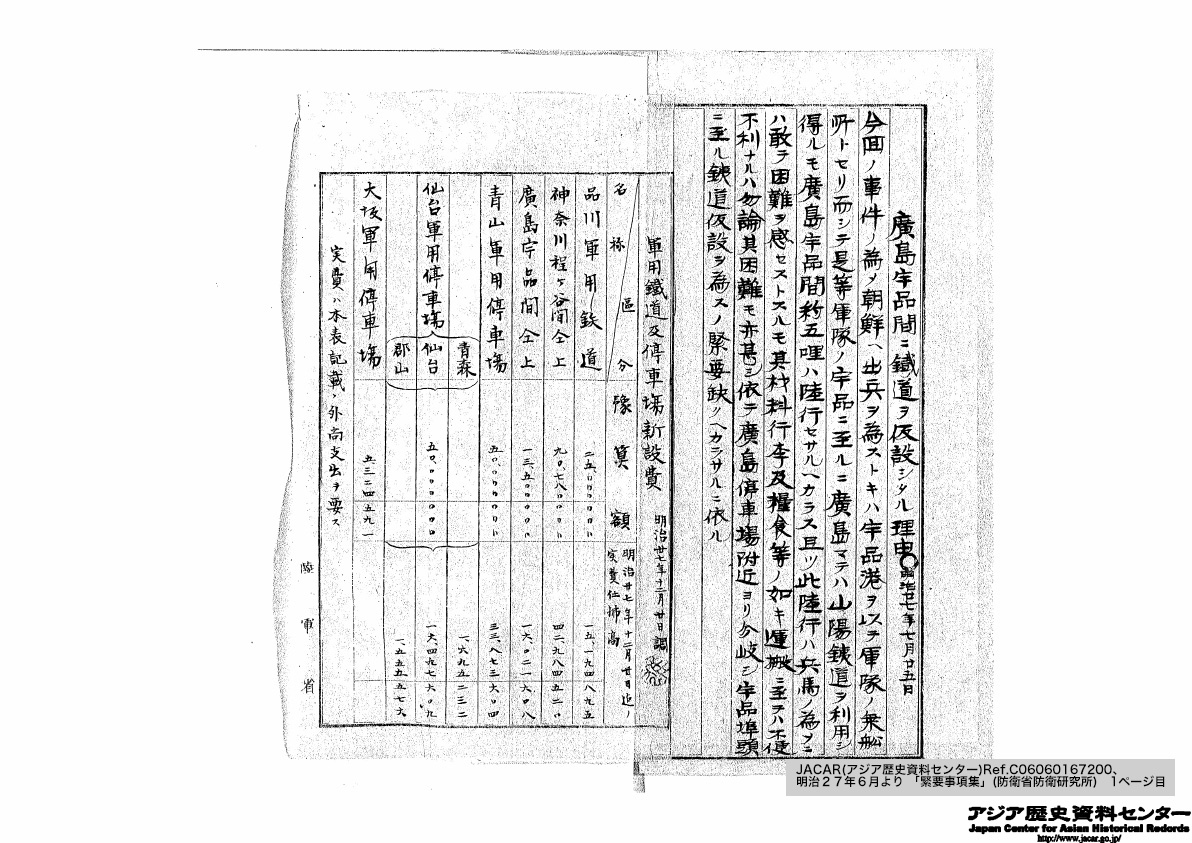 廣島宇品間ニ鐵道ヲ仮設シタル理由 明治廿七年七月廿五日
今回ノ事件ノ為メ朝鮮ヘ出兵ヲ為ストキハ宇品港ヲ以テ軍隊ノ乗船
所トセリ而シテ是等軍隊ノ宇品ニ至ルニ廣島マテハ山陽鐵道ヲ利用シ
得ルモ廣島宇品間約五哩ハ陸行セサルヘカラス且ツ此陸行ハ兵馬ノ為メニ
ハ敢テ困難ヲ感セストスルモ其材料行李及糧食等ノ如キ運搬ニ至テハ不便
不利ナルハ勿論其困難モ亦甚シ依テ廣島停車場附近ヨリ分岐シ宇品埠頭
ニ至ル鐵道仮設ヲ為スノ緊要缺クヘカラサルニ依ル
軍用鐵道及停車場新設費 明治廿七年十二月廿日調
名称 區分 豫算額 明治廿七年十二月廿日迄ノ実費仕拂高
品川軍用鉄道 二五〇〇〇〇〇〇 一五、一九四八九五
神奈川程ヶ谷間仝上 九〇、七八〇〇〇〇 四二、九八四五二〇
廣島宇品間仝上 一三、五〇〇〇〇〇 一六、〇二一六〇八
青山軍用停車場 五〇、〇〇〇〇〇〇 三三、八七三六〇四
仙台軍用停車場 五〇、〇〇〇〇〇〇
青森 一、六九五二三二
仙台 一六、四九七六〇九
郡山 一、五五五五七六
大坂軍用停車場 五三二四五九一
実費ハ本表記載ノ外尚支出ヲ要ス
陸軍省
JACAR(アジア歴史資料センター)Ref.C06060167200、
明治２７年６月より 「緊要事項集」(防衛省防衛研究所) 1ページ目
アジア歴史資料センター
Japan Center for Asian Historical Records
http://www.jacar.go.jp/